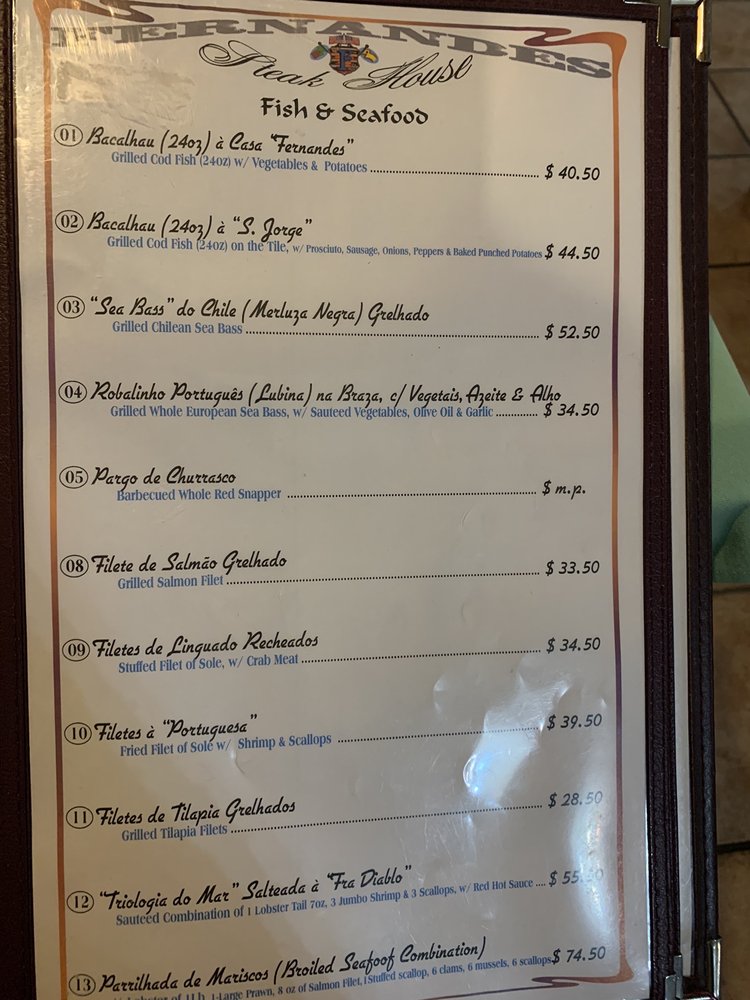 FERNANDES
Steak House
Fish & Seafood
01 Bacalhau (24oz) à Casa "Fernandes"
Grilled Cod Fish (24oz) w/ Vegetables & Potatoes ........ $ 40.50
02 Bacalhau (24oz) à "S. Jorge"
Grilled Cod Fish (24oz) on the Tile, w/ Prosciuto, Sausage, Onions, Peppers & Baked Punched Potatoes $ 44.50
03 "Sea Bass" do Chile (Merluza Negra) Grelhado
Grilled Chilean Sea Bass ........ $ 52.50
04 Robalinho Português (Lubina) na Braza, c/ Vegetais, Azeite & Alho
Grilled Whole European Sea Bass, w/ Sauteed Vegetables, Olive Oil & Garlic ........ $ 34.50
05 Pargo de Churrasco
Barbecued Whole Red Snapper ........ $ m.p.
08 Filete de Salmão Grelhado
Grilled Salmon Filet ........ $ 33.50
09 Filetes de Linguado Recheados
Stuffed Filet of Sole, w/ Crab Meat ........ $ 34.50
10 Filetes à "Portuguesa"
Fried Filet of Sole w/ Shrimp & Scallops ........ $ 39.50
11 Filetes de Tilapia Grelhados
Grilled Tilapia Filets ........ $ 28.50
12 "Triologia do Mar" Salteada à "Fra Diablo"
Sauteed Combination of 1 Lobster Tail 7oz, 3 Jumbo Shrimp & 3 Scallops, w/ Red Hot Sauce .... $ 55.50
13 Parrilhada de Mariscos (Broiled Seafoof Combination)
Lobster of 1 Lb, 1-Large Prawn, 8 oz of Salmon Filet, 1 Stuffed scallop, 6 clams, 6 mussels, 6 scallops $ 74.50